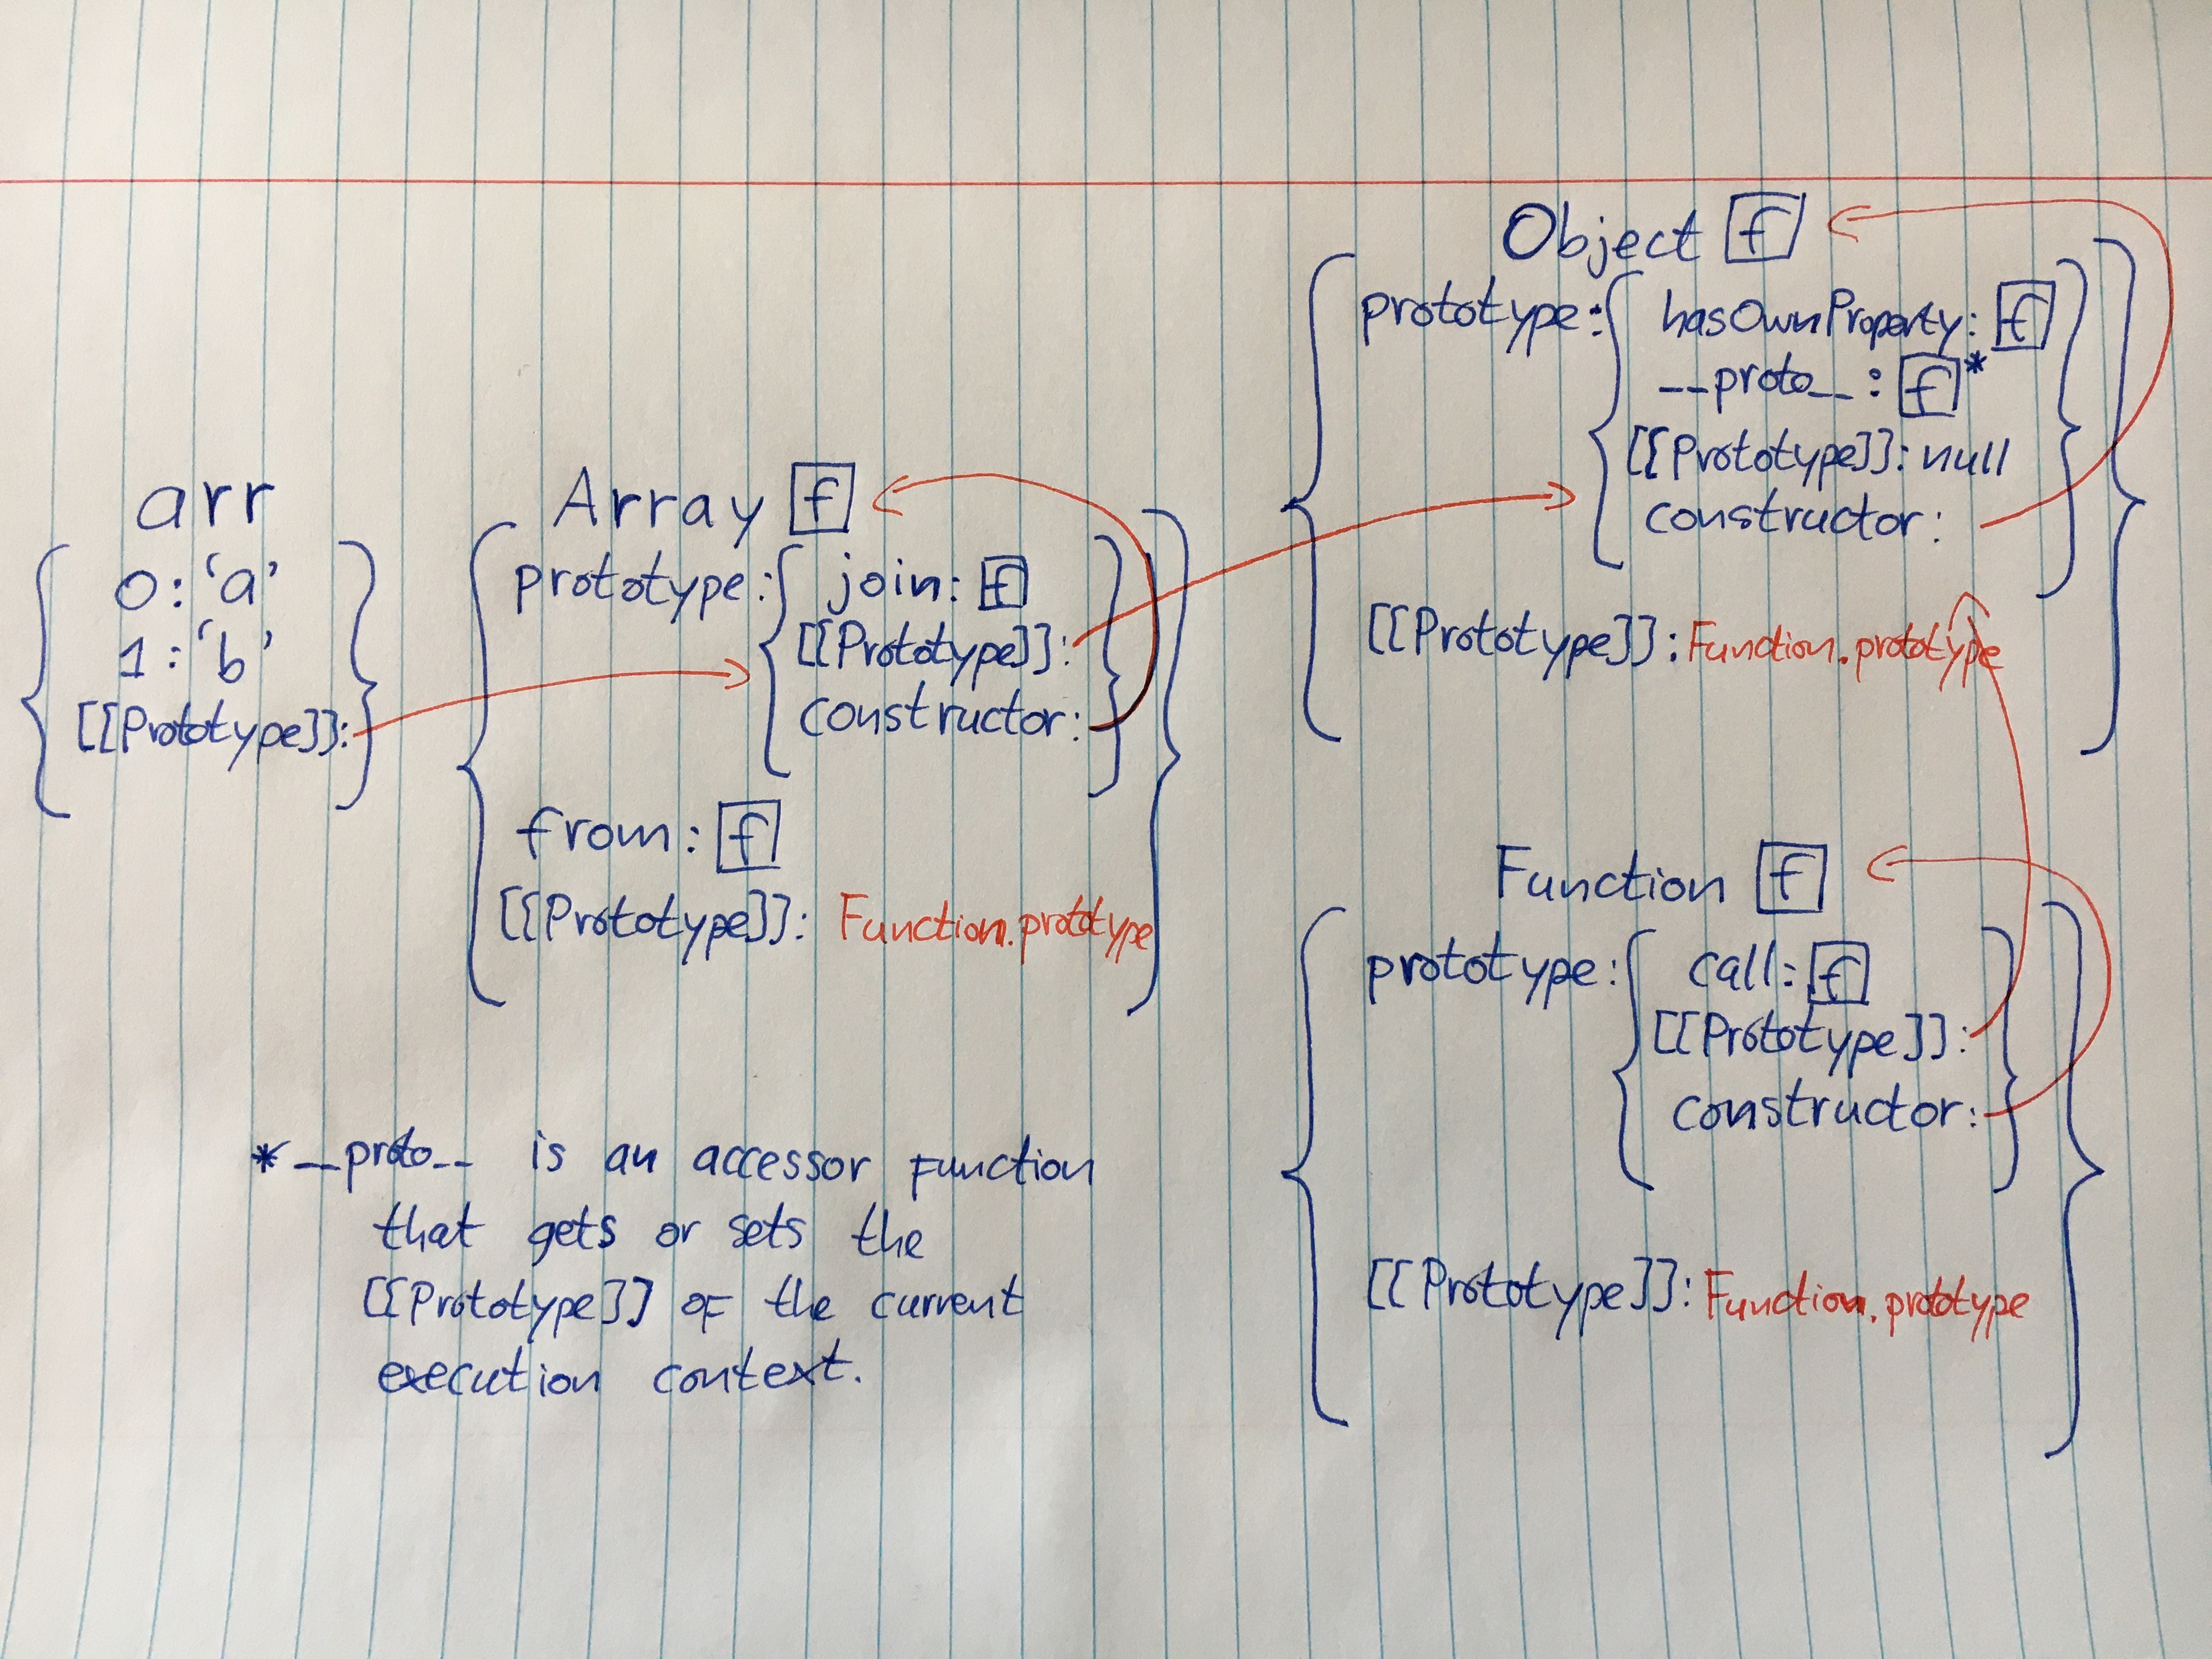 arr
0: 'a'
1: 'b'
[[Prototype]]:
Array f
prototype: { join: f
[[Prototype]]:
constructor:
from: f
[[Prototype]]: Function.prototype
Object f
prototype: { hasOwnProperty: f
__proto__: f*
[[Prototype]]: null
constructor:
[[Prototype]]: Function.prototype
Function f
prototype: { call: f
[[Prototype]]:
constructor:
[[Prototype]]: Function.prototype
* __proto__ is an accessor function
that gets or sets the
[[Prototype]] of the current
execution context.